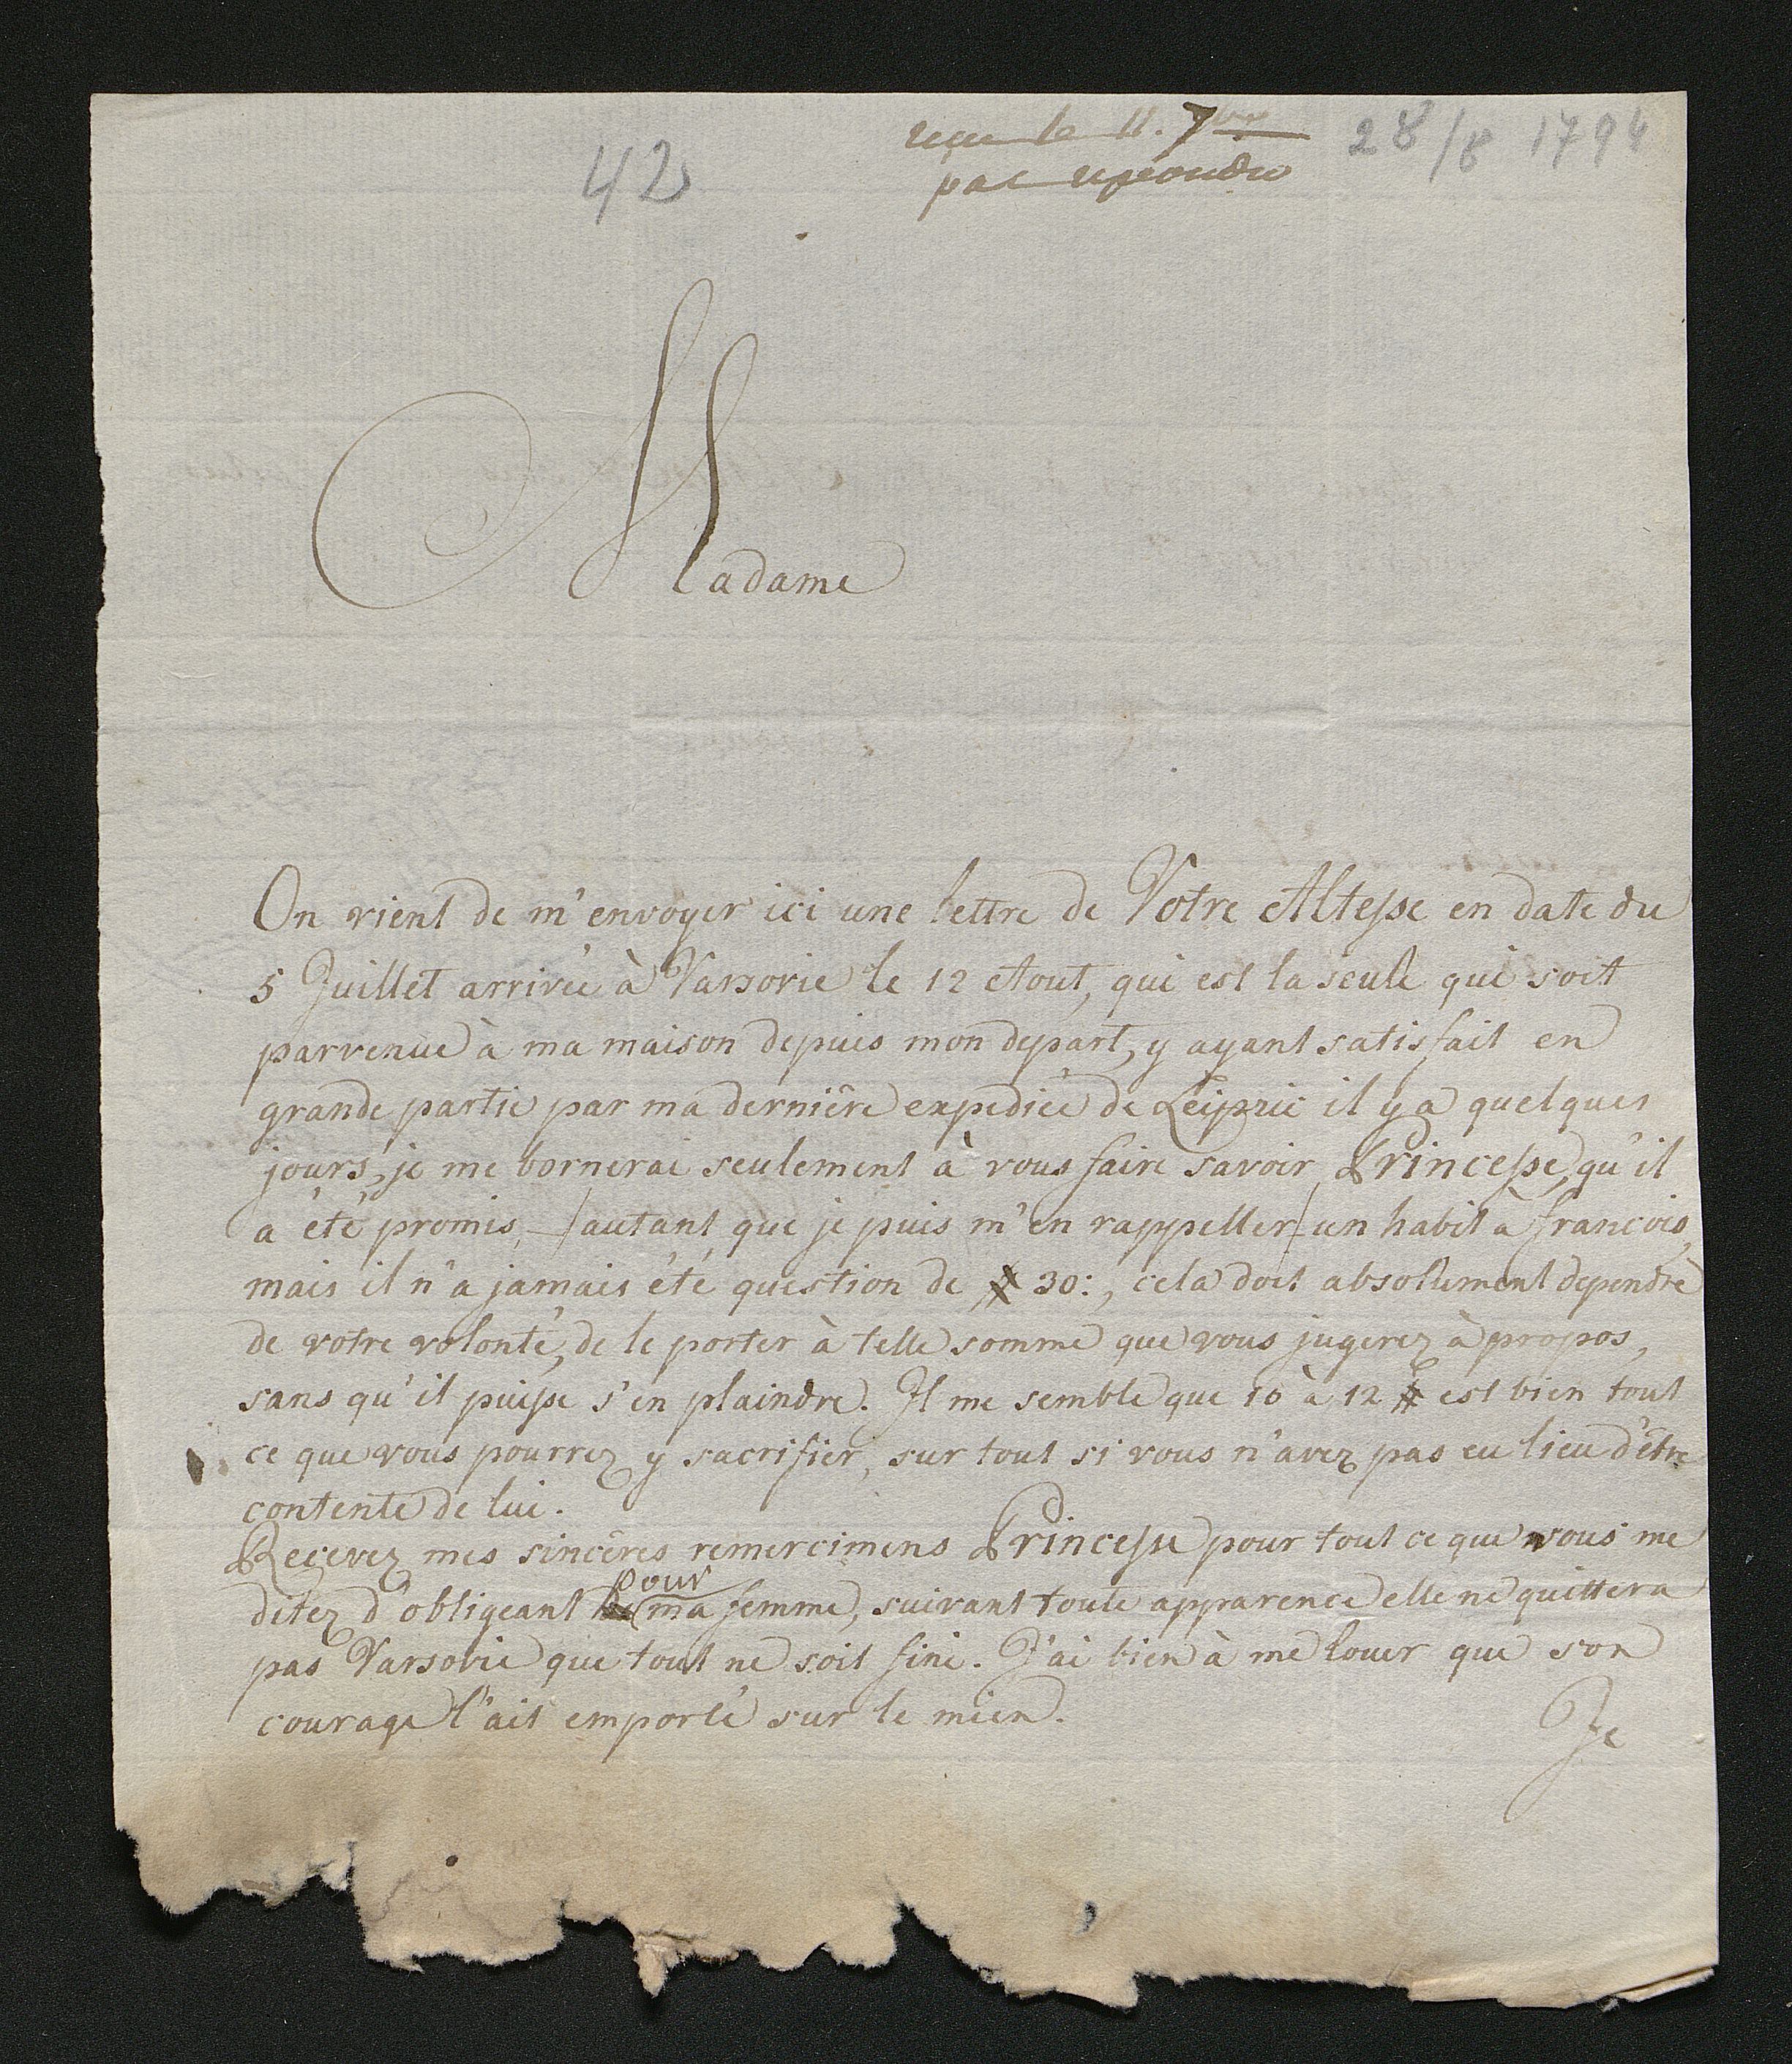 42
reçu le 11. 7bre
28/8 1794
pas repondu
Madame
On vient de m'envoyer ici une lettre de Votre Altesse en date du
5 Juillet arrivée à Varsovie le 12 Aout, qui est la seule qui soit
parvenüe à ma maison depuis mon depart, y ayant satisfait en
grande partie par ma dernière expediée de Leipzic il y a quelques
jours, je me bornerai seulement à vous faire savoir Princesse, qu'il
a été promis, /autant que je puis m'en rappeller/ un habit à francois,
mais il n'a jamais été question de # 30:, cela doit absolument dependre
de votre volonté, de le porter à telle somme que vous jugerez à propos,
sans qu'il puisse s'en plaindre. Il me semble que 10 à 12 # est bien tout
ce que vous pourrez y sacrifier, sur tout si vous n'avez pas eu lieu d'être
contente de lui.
Recevez mes sincères remercimens Princesse pour tout ce que vous me
ditez d'obligeant pour ma femme, suivant toute apparence elle ne quittera
pas Varsovie que tout ne soit fini. J'ai bien à me louer que son
courage l'ait emporté sur le mien.
Je